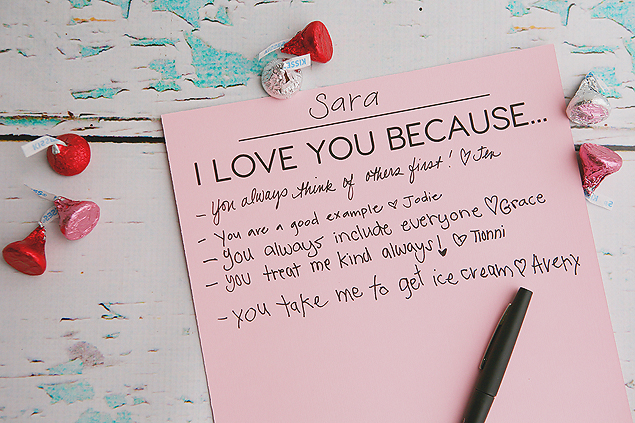 Sara
I LOVE YOU BECAUSE...
- You always think of others first! ♡ Jen
- You are a good example ♡ Jodie
- You always include everyone ♡ Grace
- you treat me kind always! ♡
- you take me to get ice cream ♡ Avery
KISSES